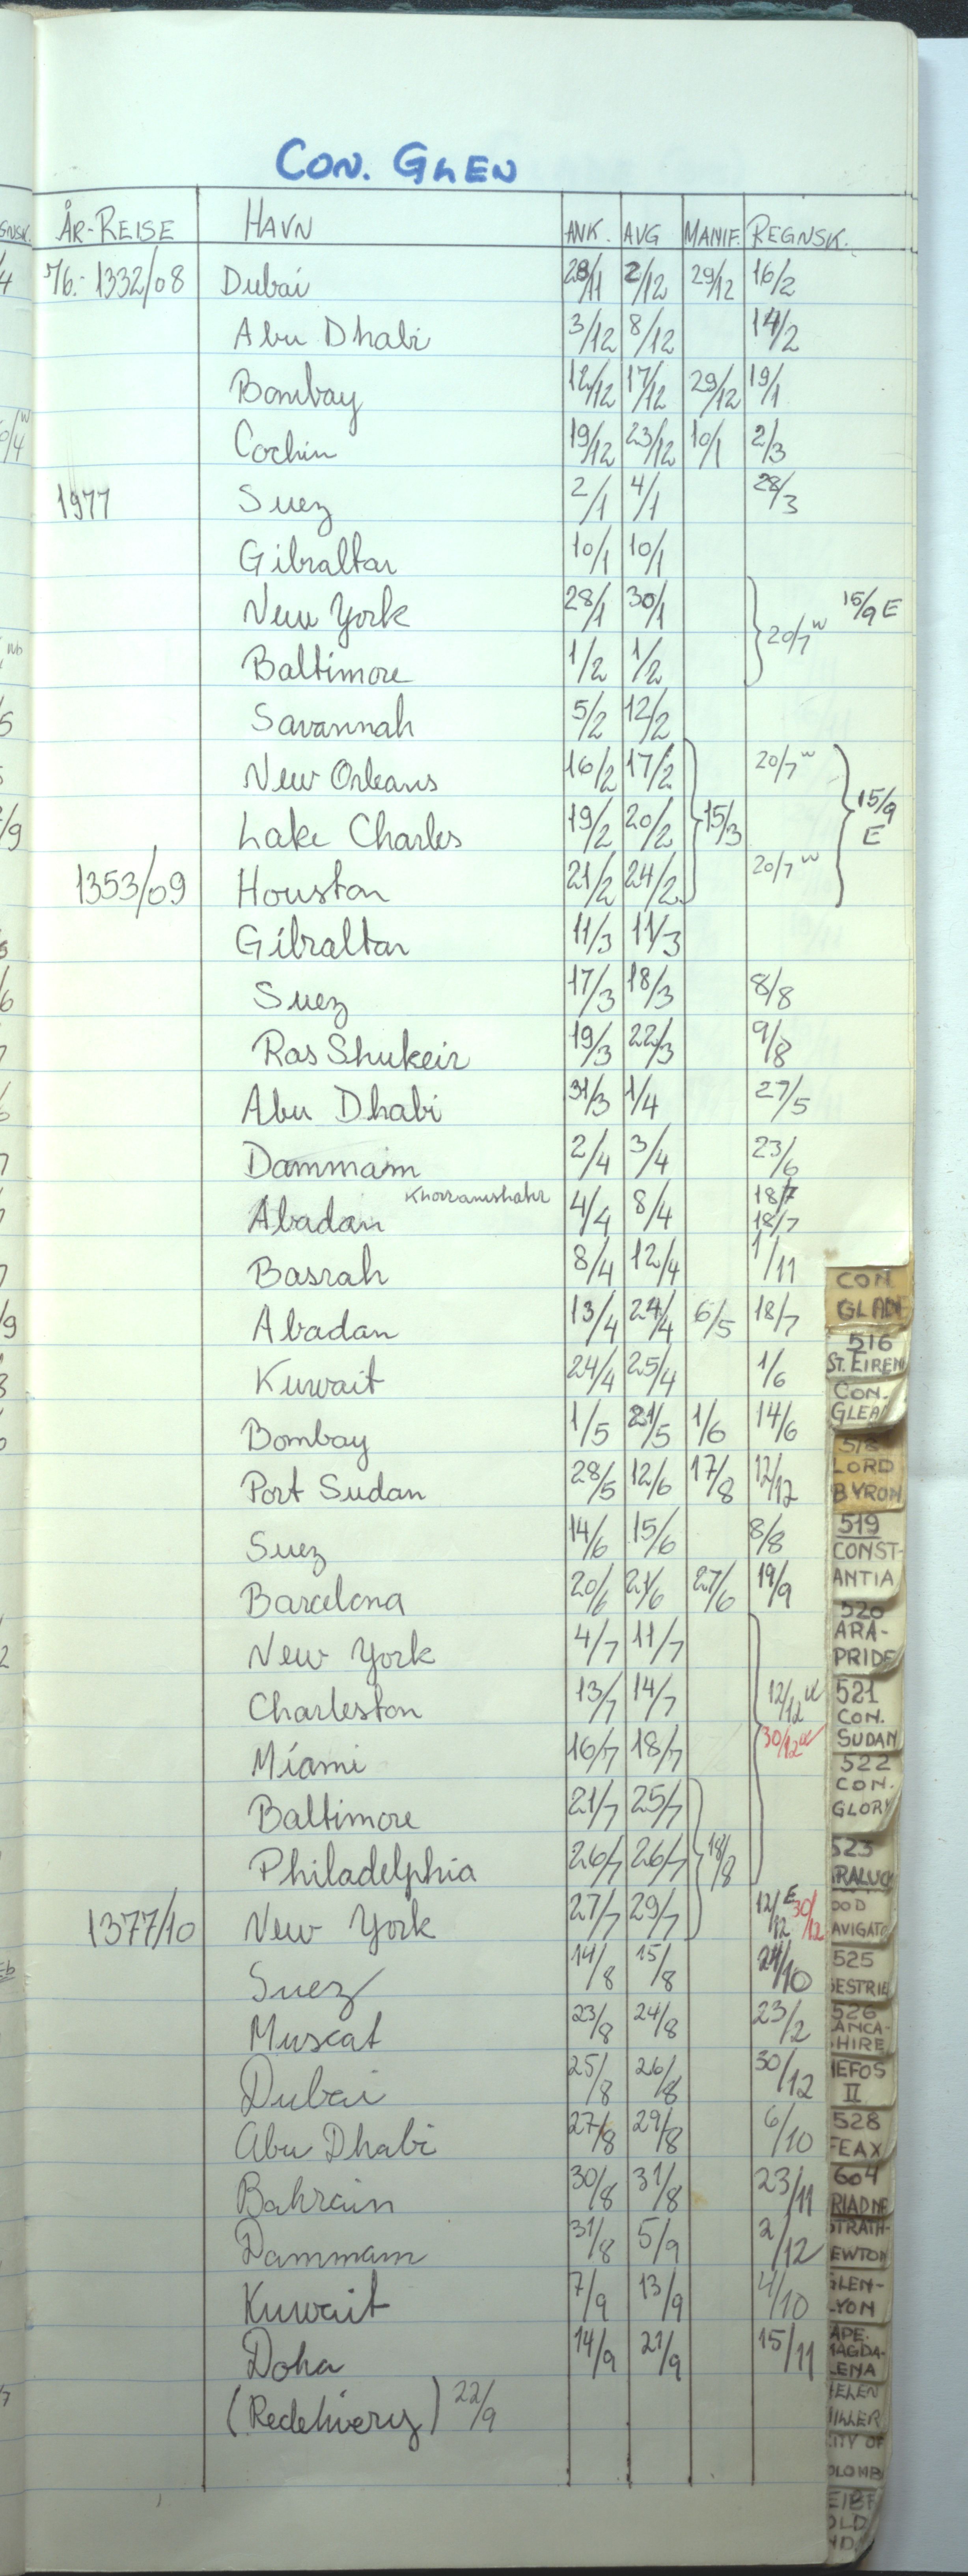 CON. GLEN
ÅR-REISE HAVN ANK. AVG MANIF. REGNSK.
76.- 1332/08 Dubai 28/11 2/12 29/12 16/2
Abu Dhabi 3/12 8/12 14/2
Bombay 12/12 17/12 29/12 19/1
Cochin 19/12 23/12 10/1 2/3
1977 Suez 2/1 4/1 28/3
Gibraltar 10/1 10/1
New York 28/1 30/1 20/7 w 15/9 E
Baltimore 1/2 1/2
Savannah 5/2 12/2
New Orleans 16/2 17/2 20/7 w
Lake Charles 19/2 20/2 15/3 15/9 E
1353/09 Houston 21/2 24/2 20/7 w
Gibraltar 11/3 11/3
Suez 17/3 18/3 8/8
Ras Shukeir 19/3 22/3 9/8
Abu Dhabi 31/3 1/4 27/5
Dammam 2/4 3/4 23/6
Khorramshahr 18/7
Abadan 4/4 8/4 18/7
Basrah 8/4 12/4 1/11
Abadan 13/4 24/4 6/5 18/7
Kuwait 24/4 25/4 1/6
Bombay 1/5 21/5 1/6 14/6
Port Sudan 28/5 12/6 17/8 12/12
Suez 14/6 15/6 8/8
Barcelona 20/6 21/6 27/6 19/9
New York 4/7 11/7
Charleston 13/7 14/7 12/12 w
Miami 16/7 18/7 30/12 w
Baltimore 21/7 25/7
Philadelphia 26/7 26/7 18/8
1377/10 New York 27/7 29/7 12/12 E 30/12
Suez 14/8 15/8 24/10
Muscat 23/8 24/8 23/2
Dubai 25/8 26/8 30/12
Abu Dhabi 27/8 29/8 6/10
Bahrain 30/8 31/8 23/11
Dammam 31/8 5/9 2/12
Kuwait 7/9 13/9 4/10
Doha 14/9 21/9 15/11
(Redelivery) 22/9
CON
GLAD
516
ST. EIREN
CON.
GLEA
518
LORD
BYRON
519
CONST-
ANTIA
520
ARA-
PRIDE
521
CON.
SUDAN
522
CON.
GLORY
523
RALUCK
OOD
AVIGATO
525
ESTRIE
526
ANCA-
HIRE
IEFOS
II
528
FEAX
604
RIADNE
STRATH-
EWTON
GLEN-
LYON
APE.
MAGDA-
LENA
ELEN
MILLER
CITY OF
OLOMB
OLD